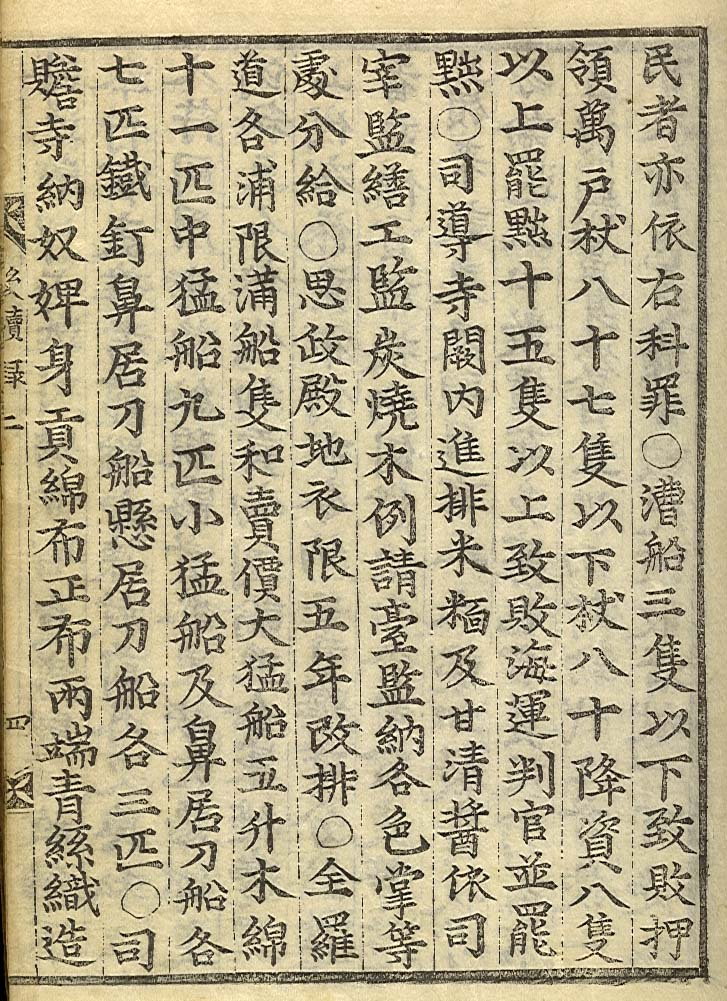 民者亦依右科罪○漕船三隻以下致敗押
領萬戶杖八十七隻以下杖八十降資八隻
以上罷黜十五隻以上致敗海運判官並罷
黜○司導寺闕内進排米麵及甘清醬依司
宰監繕工監炭燒木例請臺監納各色掌等
處分給○思政殿地衣限五年改排○全羅
道各浦限滿船隻和賣價大猛船五升木綿
十一匹中猛船九匹小猛船及鼻居刀船各
七匹鐵釘鼻居刀船懸居刀船各三匹○司
贍寺納奴婢身貢綿布正布兩端青絲織造
後續録二
四